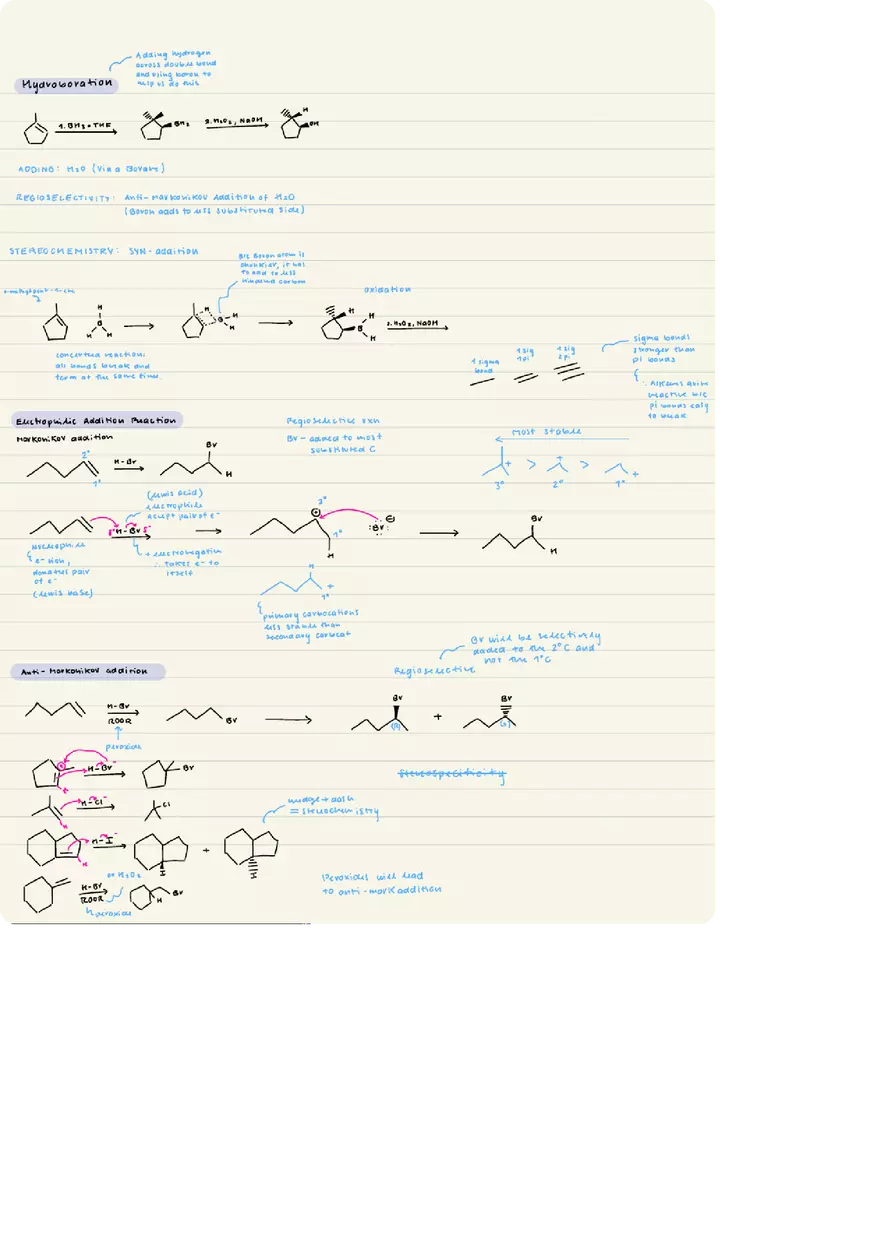 Adding hydrogen
across double bond
and using boron to
help us do this
Hydroboration
1. BH3 • THF
BH2
2. H2O2, NaOH
H
OH
ADDING: H2O (via a Borane)
REGIOSELECTIVITY: Anti-Markonikov Addition of H2O
(Boron adds to less substituted side)
STEREOCHEMISTRY: SYN-addition
B/c Boron atom is
chunkier, it has
to add to less
hindered carbon
oxidation
H
B
H
H
H
B
H
H
H
B
H
H
2. H2O2, NaOH
concerted reaction:
all bonds break and
form at the same time.
1 sigma
bond
1 sig
1 pi
1 sig
2 pi
sigma bonds
stronger than
pi bonds
∴ Alkenes quite
reactive b/c
pi bonds easy
to break
Electrophilic Addition Reaction
Markonikov addition
Regioselective rxn
Br - added to most
substituted C
Most stable
2°
1°
H-Br
Br
H
+ > + > +
3° 2° 1°
(Lewis acid)
electrophile
accept pair of e-
H-Br
2°
+
1°
H
Br
Br
H
nucleophile
e- rich,
donates pair
of e-
(Lewis base)
+ electronegative
∴ takes e- to
itself
H
+
1°
primary carbocations
less stable than
secondary carbocat
Br will be selectively
added to the 2°C and
not the 1°C
Anti-Markonikov addition
Regioselective
H-Br
ROOR
Br
peroxide
Br
(R)
+
Br
(S)
H-Br
Br
Stereospecificity
H-Cl
Cl
wedge + dash
= stereochemistry
H-I
I
+
I
or H2O2
H-Br
ROOR
Br
H
peroxide
Peroxides will lead
to anti-mark addition